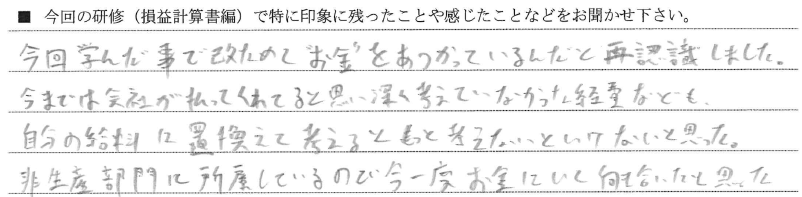 ■ 今回の研修（損益計算書編）で特に印象に残ったことや感じたことなどをお聞かせ下さい。
今回学んだ事で改ためて"お金"をあつかっているんだと再認識しました。
今までは会社が払ってくれてると思い深く考えていなかった経費なども、
自分の給料に置換えて考えるともっと考えないといけないと思った。
非生産部門に所属しているので今一度お金について向き合いたいと思った